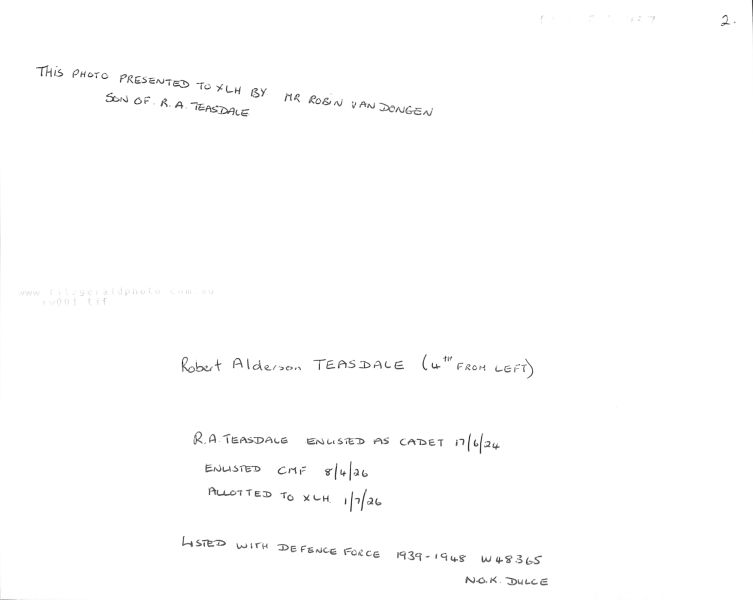 2.
THIS PHOTO PRESENTED TO XLH BY MR ROBIN VAN DONGEN
SON OF R.A. TEASDALE
www.fitzgeraldphoto.com.au
Robert Alderson TEASDALE (4TH FROM LEFT)
R.A. TEASDALE ENLISTED AS CADET 17/6/24
ENLISTED CMF 8/4/26
ALLOTTED TO XLH 1/7/26
LISTED WITH DEFENCE FORCE 1939-1948 W48365
N.O.K. DULCE